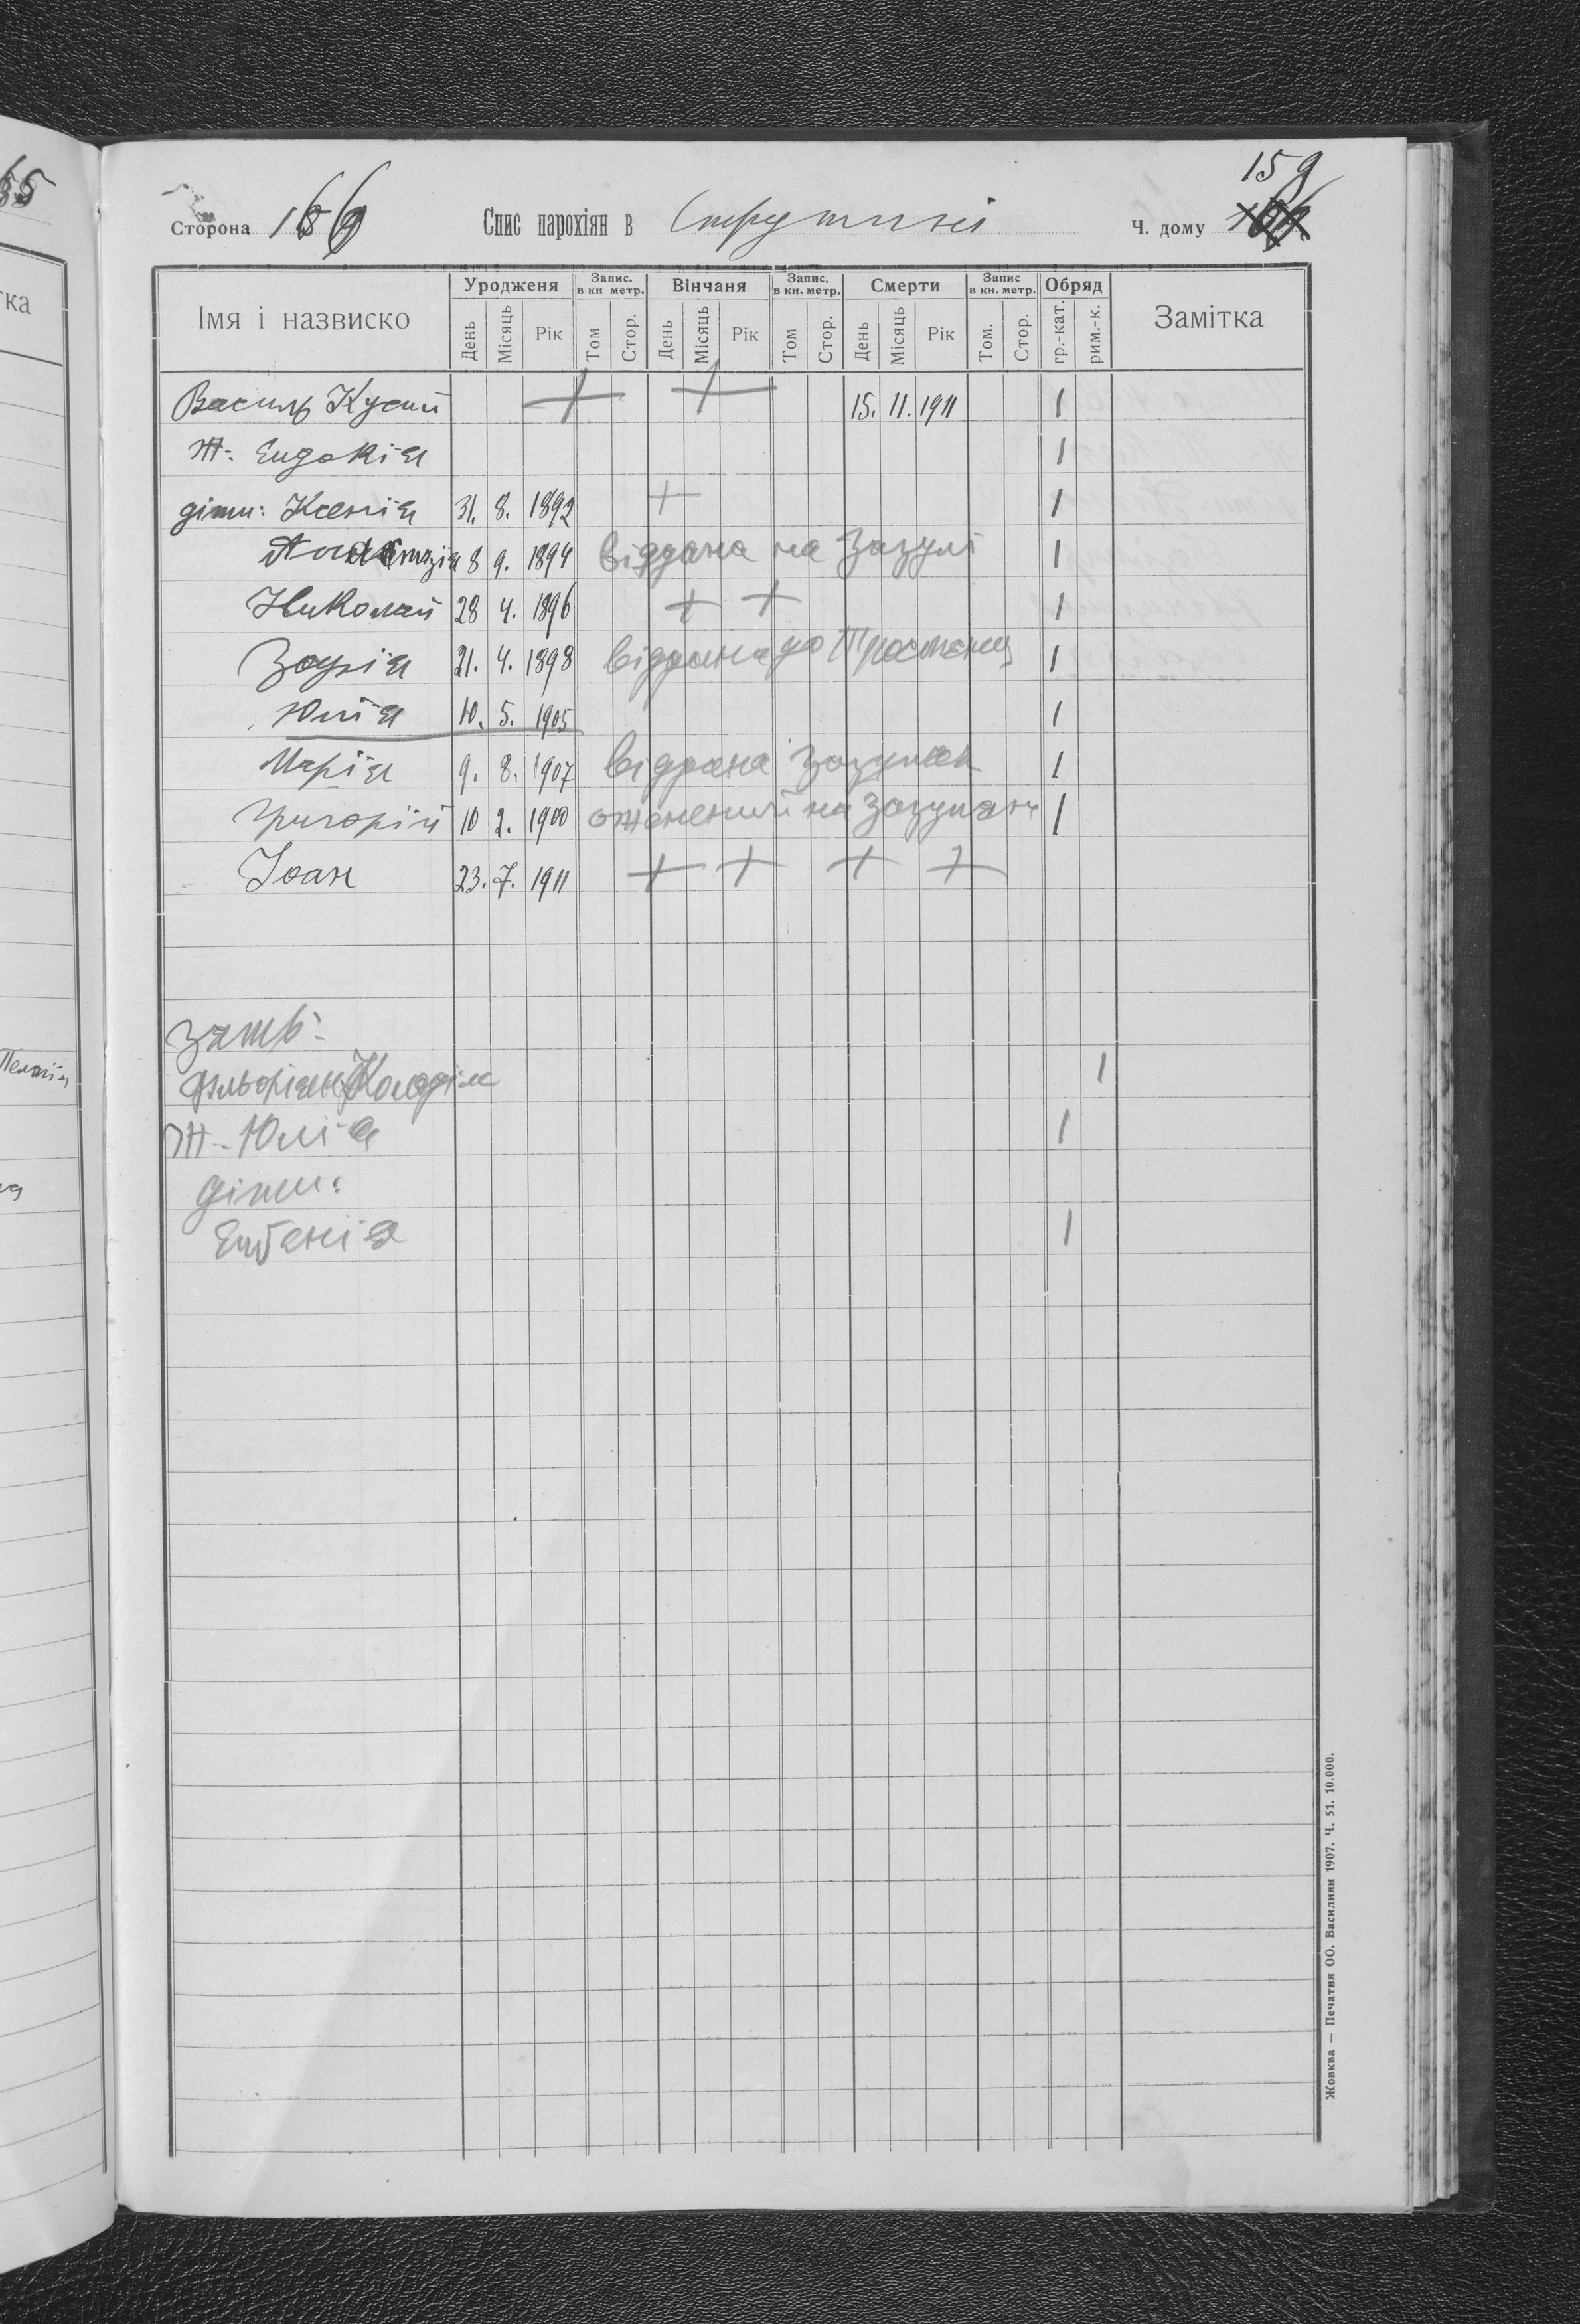 55
159
Сторона 166 Спис парохіян в Струтині Ч. дому
Імя і назвиско Уродженя Запис. в кн метр. Вінчаня Запис. в кн. метр. Смерти Запис в кн. метр. Обряд Замітка
День Місяць Рік Том Стор. День Місяць Рік Том Стор. День Місяць Рік Том. Стор. гр.-кат. рим.-к.
Василь Кусий + + 15. 11. 1911 1
Ж. Евдокія 1
діти: Ксенія 31. 8. 1892 + 1
Анастазія 8 9. 1894 віддана на Зазулі 1
Николай 28 4. 1896 + + 1
Зофія 21. 4. 1898 віддана до Тростянця 1
Юлія 10. 5. 1905 1
Марія 9. 8. 1907 віддана 1
Григорій 10 2. 1900 ожененний на 1
Іоан 23. 7. 1911 + + + +
зять:
Фльоріян 1
Ж. Юлія 1
діти:
Евгенія 1
Жовква — Печатня ОО. Василиян 1907. Ч. 51. 10.000.
тка
Пелагія